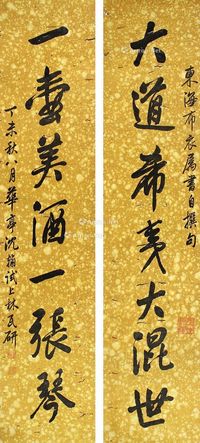 東海布衣属書自撰句
大道希夷大混世
一壺美酒一張琴
丁未秋八月華亭沈翰試上林瓦研